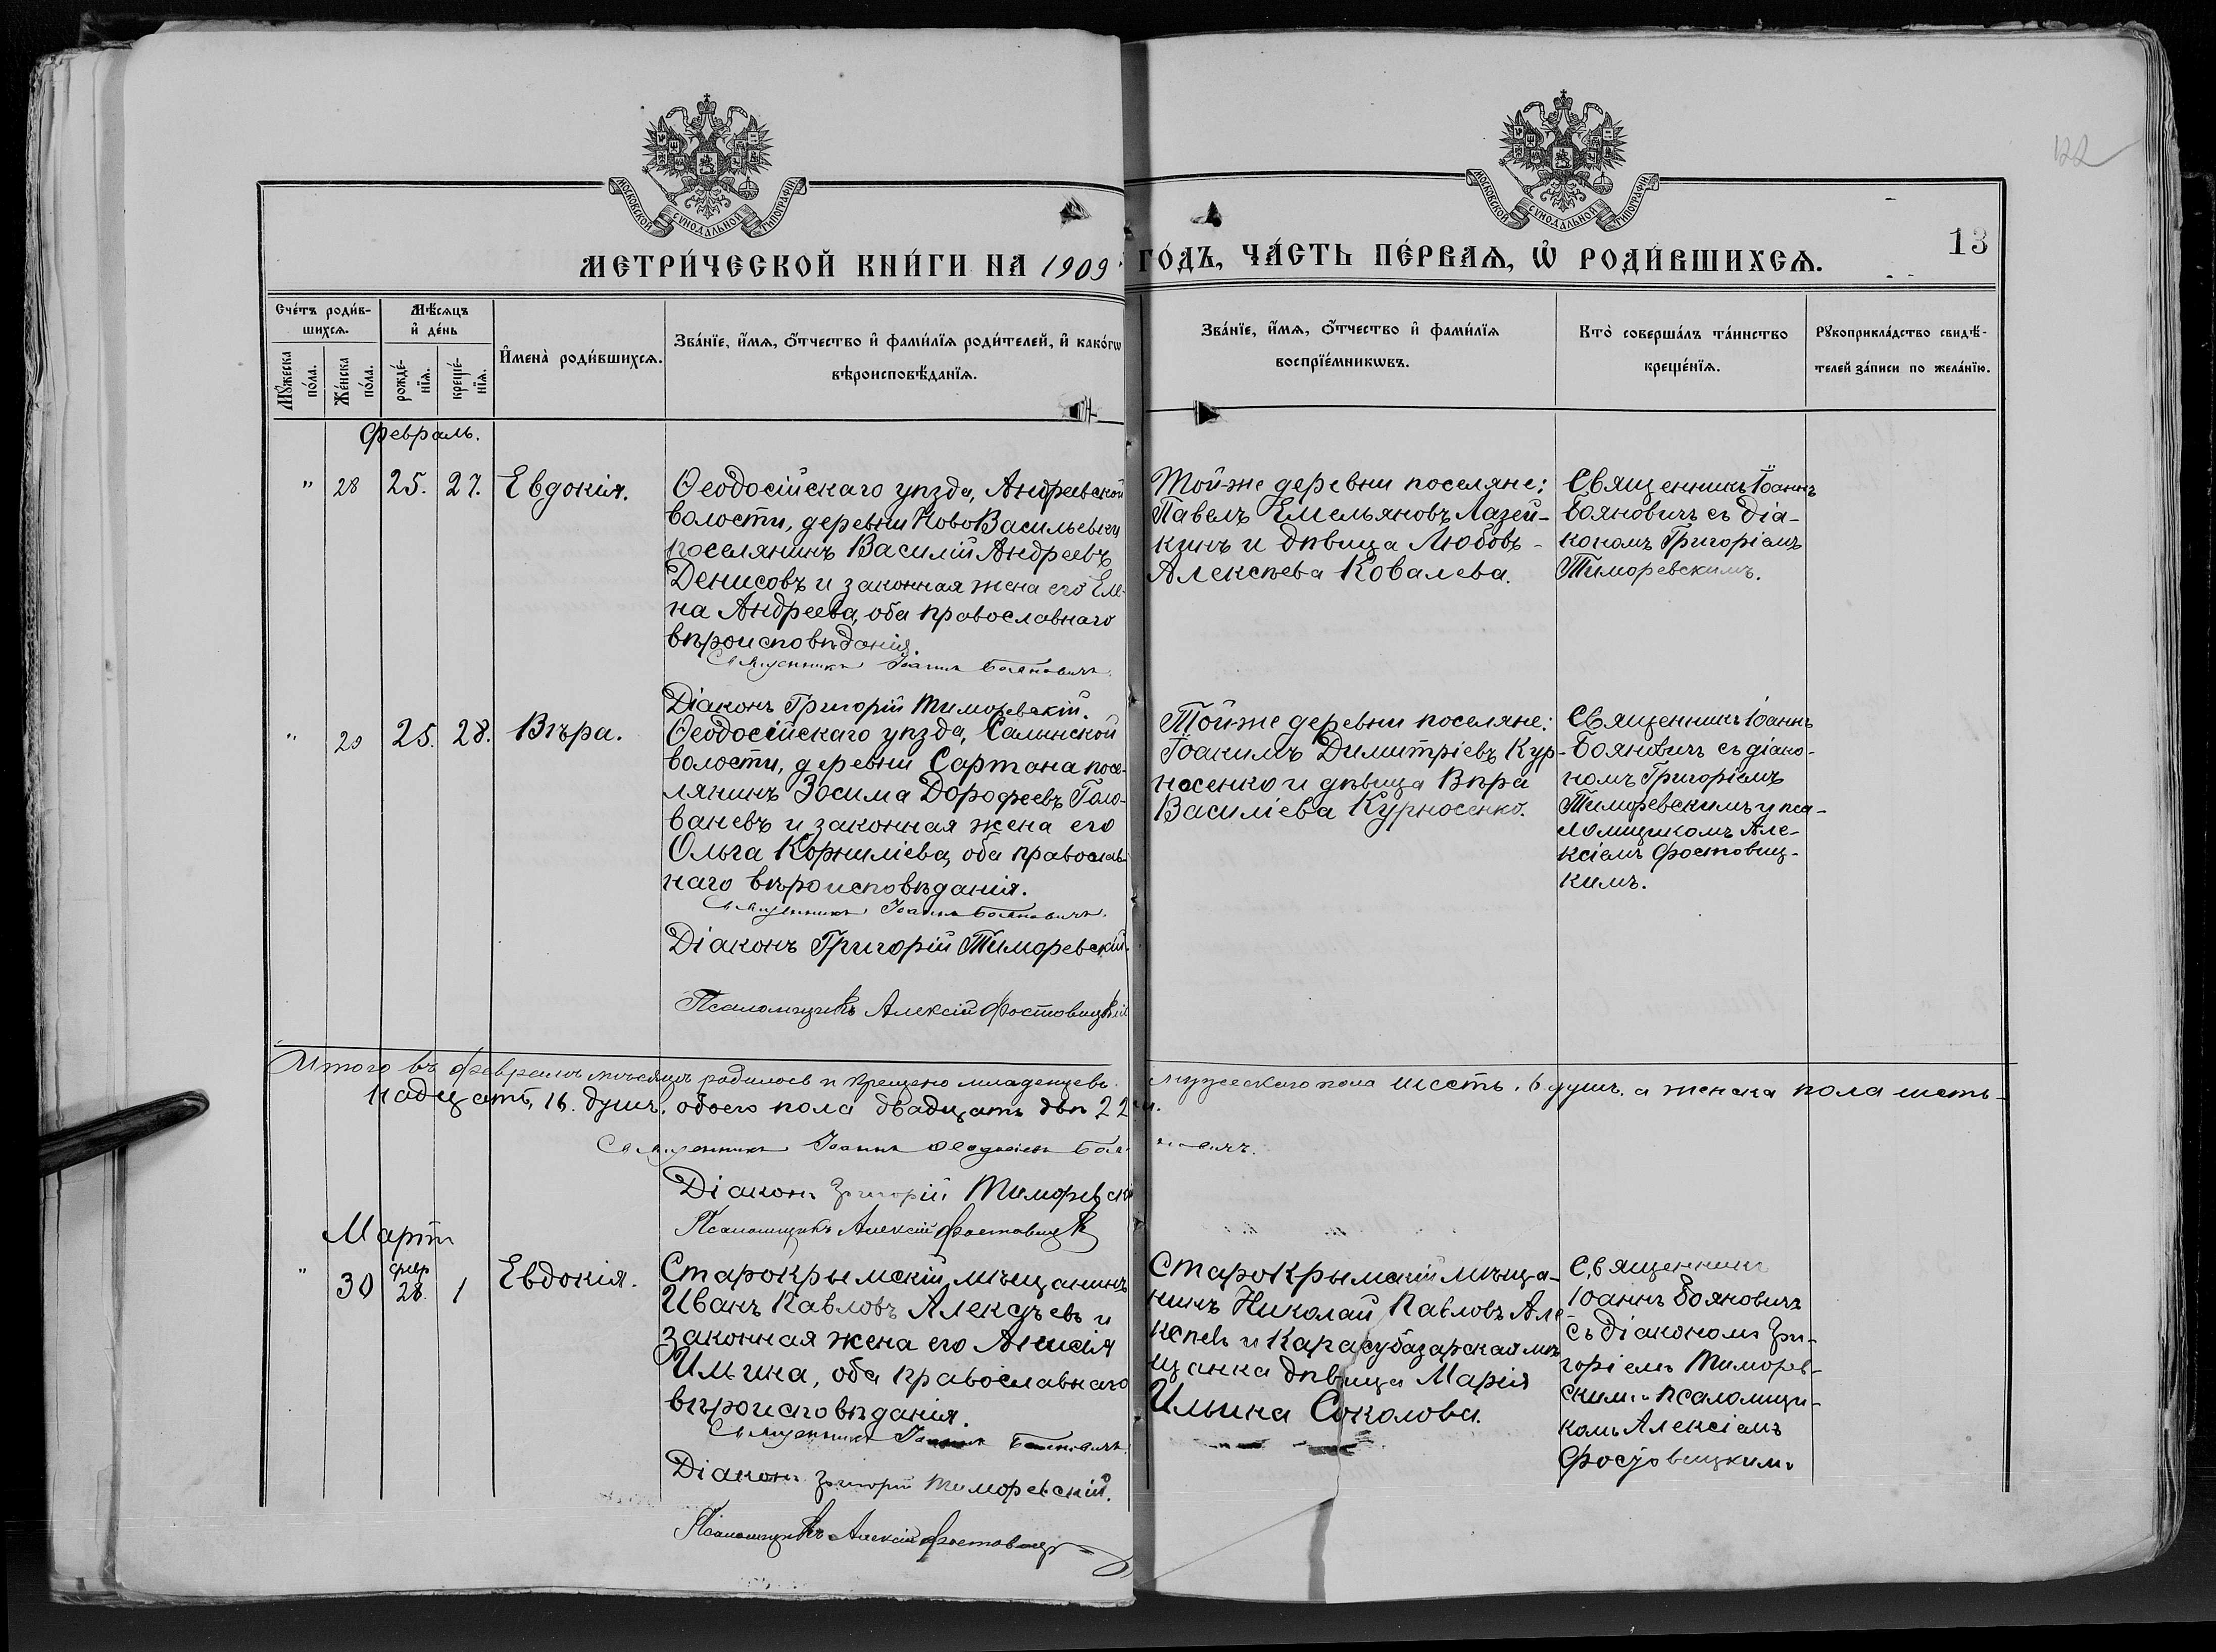 122
МОСКОВСКОЙ СѴНОДАЛЬНОЙ ТИПОГРАФІИ
МОСКОВСКОЙ СѴНОДАЛЬНОЙ ТИПОГРАФІИ
МЕТРИ́ЧЕСКОЙ КНИ́ГИ НА 1909 ГО́ДЪ, ЧА́СТЬ ПЕ́РВАѦ, Ѡ҆ РОДИ́ВШИХСѦ.
13
Сче́тъ роди́в-
шихсѧ.
Мꙋ́жеска
по́ла.
Же́нска
по́ла.
Мѣ́сѧцъ
и҆ де́нь
рожде́-
нїѧ.
креще́-
нїѧ.
И҆мена̀ роди́вшихсѧ.
Зва́нїе, и҆́мѧ, ѻ҆́тчество и҆ фами́лїѧ роди́телей, и҆ како́гѡ
вѣроисповѣ́данїѧ.
Зва́нїе, и҆́мѧ, ѻ҆́тчество и҆ фами́лїѧ
воспрїе́мникѡвъ.
Кто̀ соверша́лъ та́инство
креще́нїѧ.
Рꙋкоприкла́дство свидѣ́-
телей за́писи по жела́нїю.
Февраль.
" 28 25. 27. Евдокія.
Ѳеодосійскаго уѣзда, Андреевской
волости, деревни НовоВасильевки
поселянинъ Василій Андреевъ
Денисовъ и законная жена его Еле-
на Андреева, оба православнаго
вѣроисповѣданія.
Священникъ Іоаннъ Бояновичъ.
Діаконъ Григорій Тиморевскій.
Той-же деревни поселяне:
Павелъ Емельяновъ Лазей-
кинъ и дѣвица Любовь
Алексѣева Ковалева.
Священникъ Іоаннъ
Бояновичъ съ діа-
кономъ Григоріемъ
Тиморевскимъ.
" 29 25. 28. Вѣра.
Ѳеодосійскаго уѣзда, Салынской
волости, деревни Сартана посе-
лянинъ Зосима Дорофеевъ Голо-
ваневъ и законная жена его
Ольга Корниліева, оба православ-
наго вѣроисповѣданія.
Священникъ Іоаннъ Бояновичъ.
Діаконъ Григорій Тиморевскій.
Псаломщикъ Алексій Фостовицкій
Той-же деревни поселяне:
Іоакимъ Димитріевъ Кур-
носенко и дѣвица Вѣра
Василіева Курносенко.
Священникъ Іоаннъ
Бояновичъ съ діако-
номъ Григоріемъ
Тиморевскимъ и пса-
ломщикомъ Але-
ксіемъ Фостовиц-
кимъ.
Итого въ февралѣ мѣсяцѣ родилось и крещено младенцевъ мужескаго пола шесть, 6 душъ, а женска пола шест-
надцать, 16 душъ, обоего пола двадцать двѣ 22
Священникъ Іоаннъ Ѳеодосіевъ Бояновичъ.
Діаконъ Григорій Тиморевскій
Псаломщикъ Алексій Фостовицк
Мартъ
" 30 февр 28. 1 Евдокія.
Старокрымскій мѣщанинъ
Иванъ Павловъ Алексѣевъ и
законная жена его Анисія
Ильина, оба православнаго
вѣроисповѣданія.
Священникъ Іоаннъ Бояновичъ.
Діаконъ Григорій Тиморевскій.
Псаломщикъ Алексій Фостовицк
Старокрымскій мѣща-
нинъ Николай Павловъ Але-
ксѣевъ и Карасубазарская мѣ-
щанка дѣвица Марія
Ильина Соколова.
Священникъ
Іоаннъ Бояновичъ
съ діакономъ Гри-
горіемъ Тиморев-
скимъ и псаломщи-
комъ Алексіемъ
Фостовицкимъ